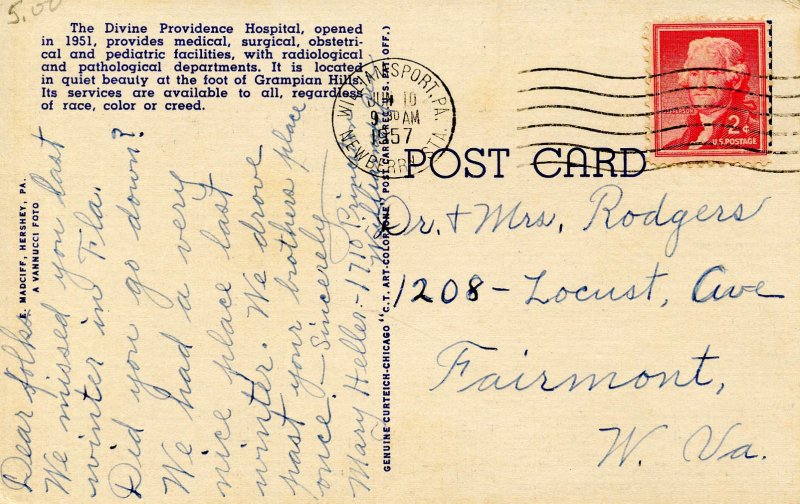 5.00
The Divine Providence Hospital, opened
in 1951, provides medical, surgical, obstetri-
cal and pediatric facilities, with radiological
and pathological departments. It is located
in quiet beauty at the foot of Grampian Hills.
Its services are available to all, regardless
of race, color or creed.
E. MADCIFF, HERSHEY, PA.
A VANNUCCI FOTO
Dear folks
We missed you last
winter in Fla.
Did you go down?
We had a very
nice place last
winter. We drove
past your brothers place
once. – Sincerely
Mary Heller – 1710
GENUINE CURTEICH-CHICAGO "C.T. ART-COLORTONE" POST CARD (REG. U.S. PAT. OFF.)
WILLIAMSPORT, PA.
JUN 10
9 30 AM
1957
NEWBERRY STA.
2¢
U.S. POSTAGE
POST CARD
Dr. + Mrs. Rodgers
1208 – Locust, Ave
Fairmont,
W. Va.